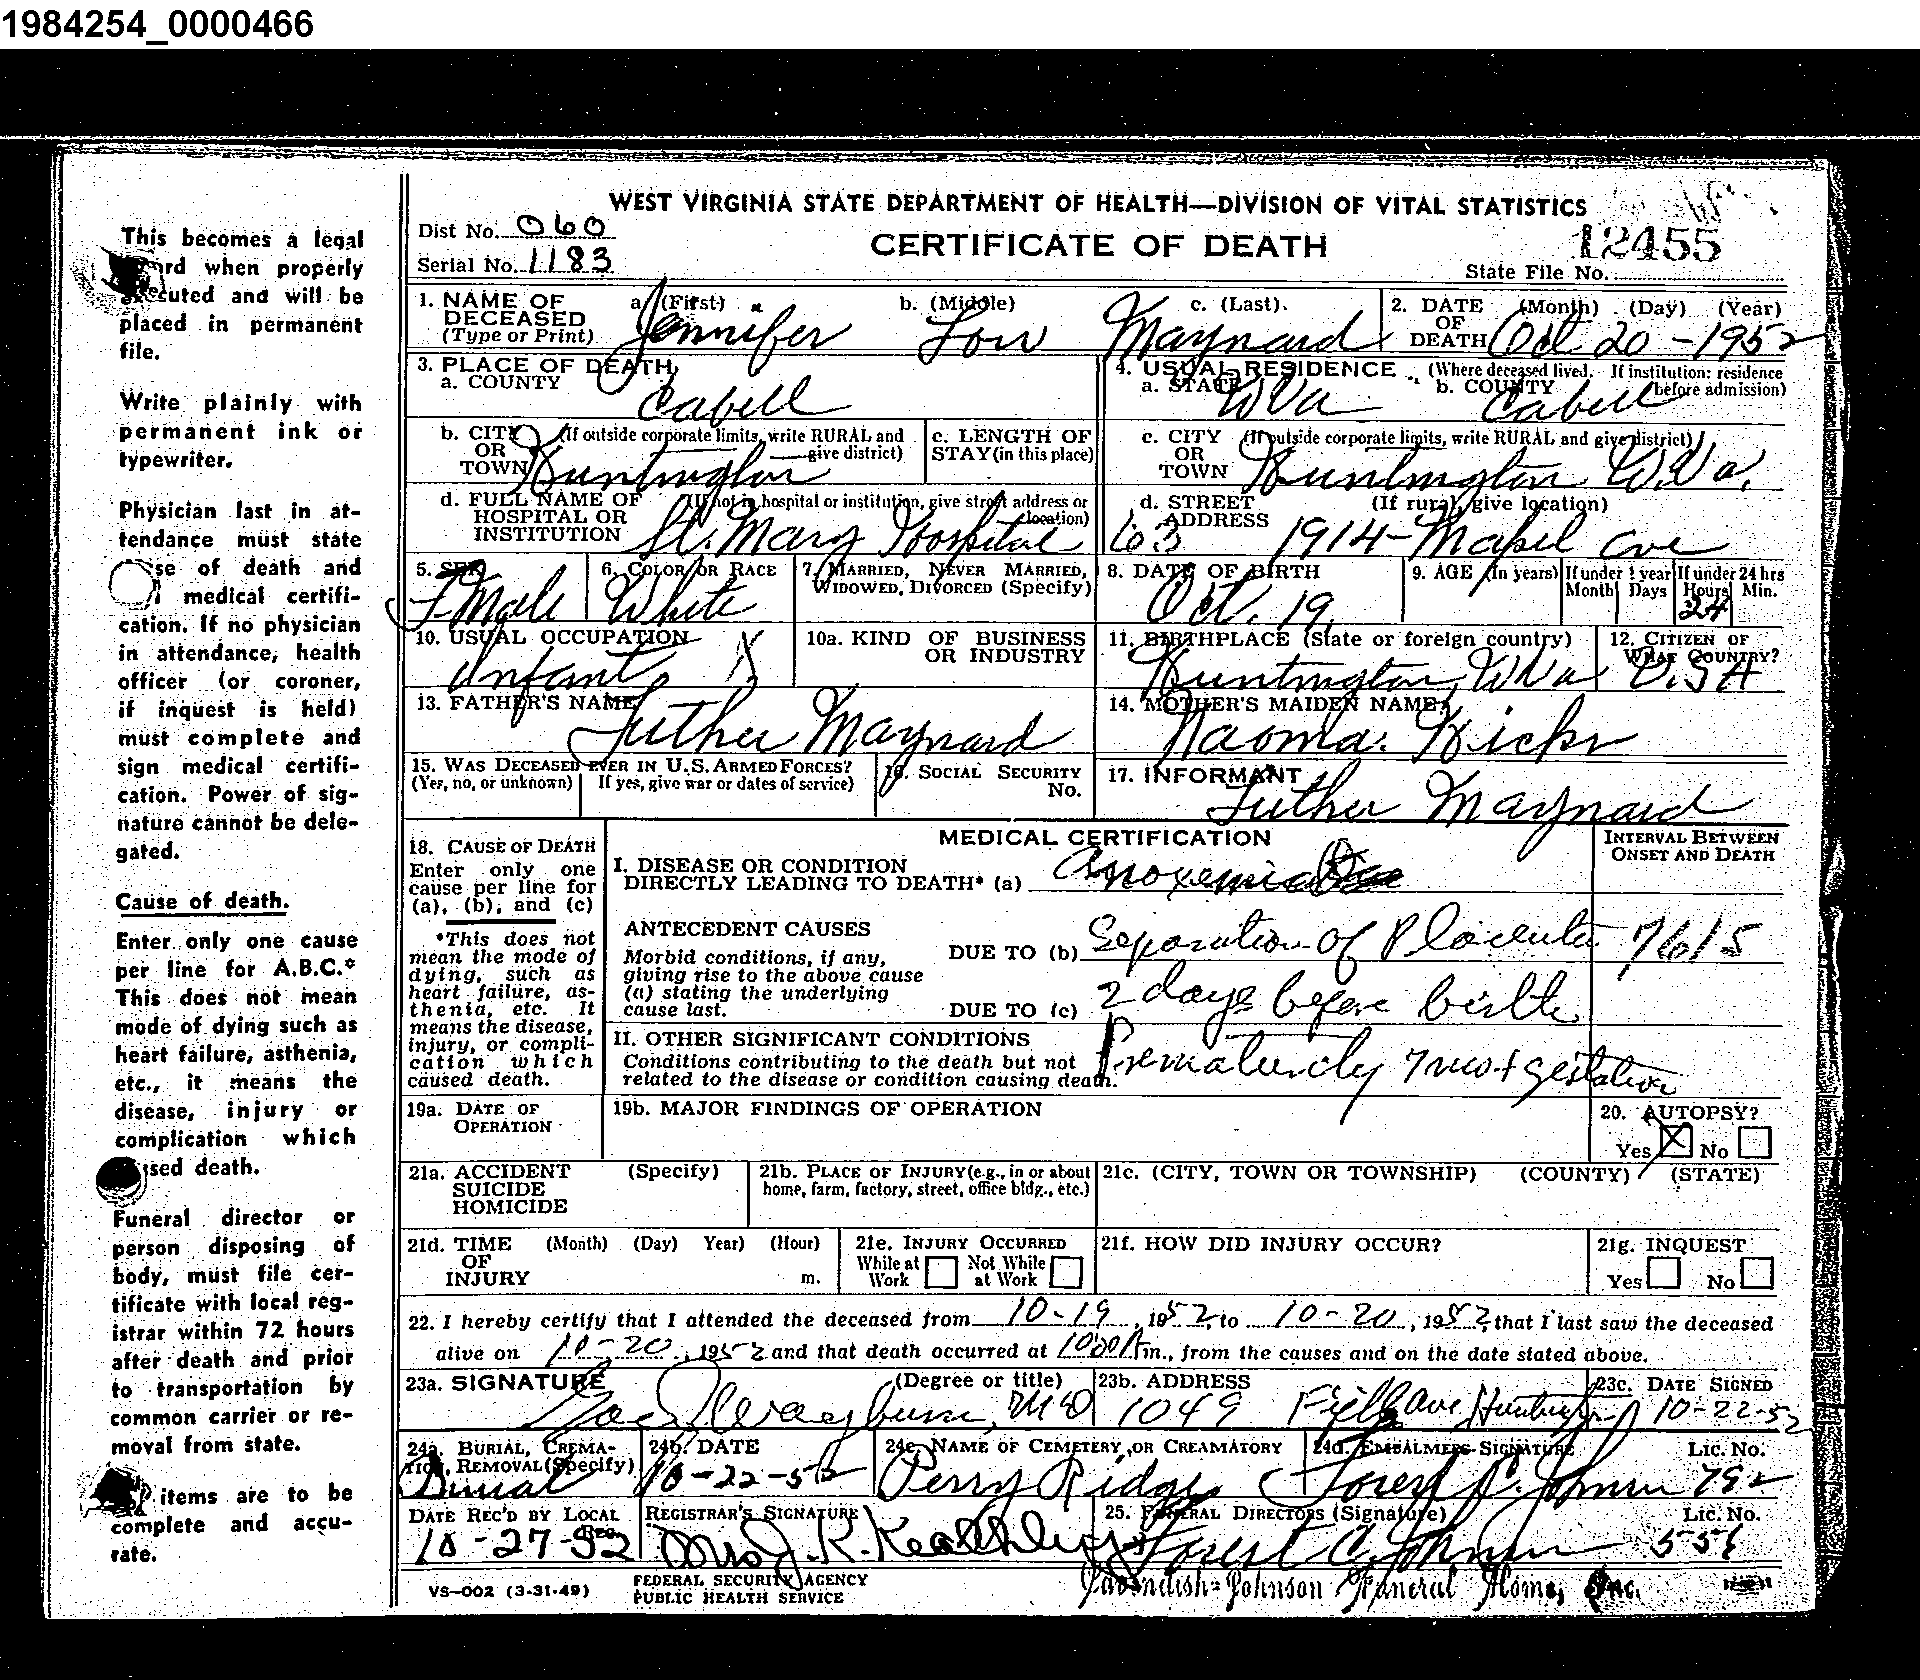 1984254_0000466
This becomes a legal
record when properly
executed and will be
placed in permanent
file.
Write plainly with
permanent ink or
typewriter.
Physician last in at-
tendance must state
cause of death and
sign medical certifi-
cation. If no physician
in attendance, health
officer (or coroner,
if inquest is held)
must complete and
sign medical certifi-
cation. Power of sig-
nature cannot be dele-
gated.
Cause of death.
Enter only one cause
per line for A.B.C.*
This does not mean
mode of dying such as
heart failure, asthenia,
etc., it means the
disease, injury or
complication which
caused death.
Funeral director or
person disposing of
body, must file cer-
tificate with local reg-
istrar within 72 hours
after death and prior
to transportation by
common carrier or re-
moval from state.
items are to be
complete and accu-
rate.
WEST VIRGINIA STATE DEPARTMENT OF HEALTH—DIVISION OF VITAL STATISTICS
Dist No. 060
CERTIFICATE OF DEATH
12455
Serial No. 1183
State File No.
1. NAME OF DECEASED (Type or Print) a. (First) b. (Middle) c. (Last)
Jennifer Lou Maynard
2. DATE OF DEATH (Month) (Day) (Year)
Oct. 20 - 1952
3. PLACE OF DEATH
a. COUNTY
Cabell
4. USUAL RESIDENCE (Where deceased lived. If institution: residence before admission)
a. STATE WVa b. COUNTY Cabell
b. CITY OR TOWN (If outside corporate limits, write RURAL and give district)
Huntington
c. LENGTH OF STAY (in this place)
c. CITY OR TOWN (If outside corporate limits, write RURAL and give district)
Huntington W.Va.
d. FULL NAME OF HOSPITAL OR INSTITUTION (If not in hospital or institution, give street address or location)
St. Mary Hospital
d. STREET ADDRESS (If rural, give location)
63 1914 - Mapel Ave
5. SEX
Fmale
6. COLOR OR RACE
White
7. MARRIED, NEVER MARRIED, WIDOWED, DIVORCED (Specify)
8. DATE OF BIRTH
Oct. 19,
9. AGE (In years) If under 1 year Month Days If under 24 hrs Hours Min.
24
10. USUAL OCCUPATION
Infant
10a. KIND OF BUSINESS OR INDUSTRY
11. BIRTHPLACE (State or foreign country)
Huntington, WVa
12. CITIZEN OF WHAT COUNTRY?
U.S.A
13. FATHER'S NAME
Luther Maynard
14. MOTHER'S MAIDEN NAME
Naoma Hicks
15. WAS DECEASED EVER IN U.S. ARMED FORCES?
(Yes, no, or unknown) If yes, give war or dates of service)
16. SOCIAL SECURITY No.
17. INFORMANT
Luther Maynard
18. CAUSE OF DEATH
Enter only one
cause per line for
(a), (b), and (c)
*This does not
mean the mode of
dying, such as
heart failure, as-
thenia, etc. It
means the disease,
injury, or compli-
cation which
caused death.
MEDICAL CERTIFICATION
INTERVAL BETWEEN ONSET AND DEATH
I. DISEASE OR CONDITION
DIRECTLY LEADING TO DEATH* (a) Anoxemia
ANTECEDENT CAUSES
Morbid conditions, if any,
giving rise to the above cause
(a) stating the underlying
cause last.
DUE TO (b) Separation of Placenta 7615
DUE TO (c) 2 days before birth
II. OTHER SIGNIFICANT CONDITIONS
Conditions contributing to the death but not
related to the disease or condition causing death.
Prematurity 7 mos gestation
19a. DATE OF OPERATION
19b. MAJOR FINDINGS OF OPERATION
20. AUTOPSY?
Yes No
21a. ACCIDENT SUICIDE HOMICIDE (Specify)
21b. PLACE OF INJURY (e.g., in or about home, farm, factory, street, office bldg., etc.)
21c. (CITY, TOWN OR TOWNSHIP) (COUNTY) (STATE)
21d. TIME OF INJURY (Month) (Day) Year) (Hour) m.
21e. INJURY OCCURRED
While at Work Not While at Work
21f. HOW DID INJURY OCCUR?
21g. INQUEST
Yes No
22. I hereby certify that I attended the deceased from 10-19, 1952, to 10-20, 1952, that I last saw the deceased
alive on 10-20, 1952 and that death occurred at m., from the causes and on the date stated above.
23a. SIGNATURE (Degree or title)
MD
23b. ADDRESS
1049 Ave
23c. DATE SIGNED
10-22-52
24a. BURIAL, CREMATION, REMOVAL (Specify)
Burial
24b. DATE
10-22-52
24c. NAME OF CEMETERY OR CREAMATORY
Perry Ridge
24d. EMBALMERS SIGNATURE Lic. No.
Forest C. Johnson 792
DATE REC'D BY LOCAL REG.
10-27-52
REGISTRAR'S SIGNATURE
Mrs J. R. Keathley
25. FUNERAL DIRECTORS (Signature) Lic. No.
Forest C. Johnson
VS-002 (3-31-49)
FEDERAL SECURITY AGENCY
PUBLIC HEALTH SERVICE
Cavendish-Johnson Funeral Home, Inc.